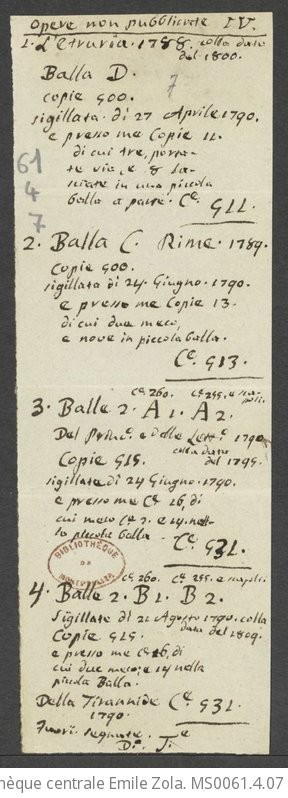 Opere non pubblicate IV.
1. L'Etruria. 1788. colla data
del 1800.
Balla D. 7
copie 900.
sigillata di 27 Aprile 1790.
e presso me Copie 11.
di cui tre, porta-
te via, e 8 la-
sciate in una piccola
balla a parte. Ce. 911.
61
4
7
2. Balla C. Rime. 1789.
Copie 900.
sigillata di 24. Giugno. 1790.
e presso me Copie 13.
di cui due meco,
e nove in piccola balla.
Ce. 913.
Ce. 260. Ce. 255. e
3. Balle 2. A1. A2.
Del Princ.e e delle Lett.e 1790
colla data
del 1795.
Copie 915.
sigillate di 24 Giugno. 1790.
e presso me Ce. 16, di
cui meco Ce. 2. e 14 nel-
la piccola balla. Ce. 931.
BIBLIOTHÈQUE
DE
MONTPELLIER
Ce. 260. Ce. 255. e napoli.
4. Balle 2. B1. B2.
Sigillate di 21 Agosto 1790. colla
data del 1809.
Copie 915.
e presso me Ce. 16, di
cui due meco, e 14 nella
piccola Balla.
Della Tirannide Ce. 931.
1790.
Fuori segnate.
D.e J.e
hèque centrale Emile Zola. MS0061.4.07